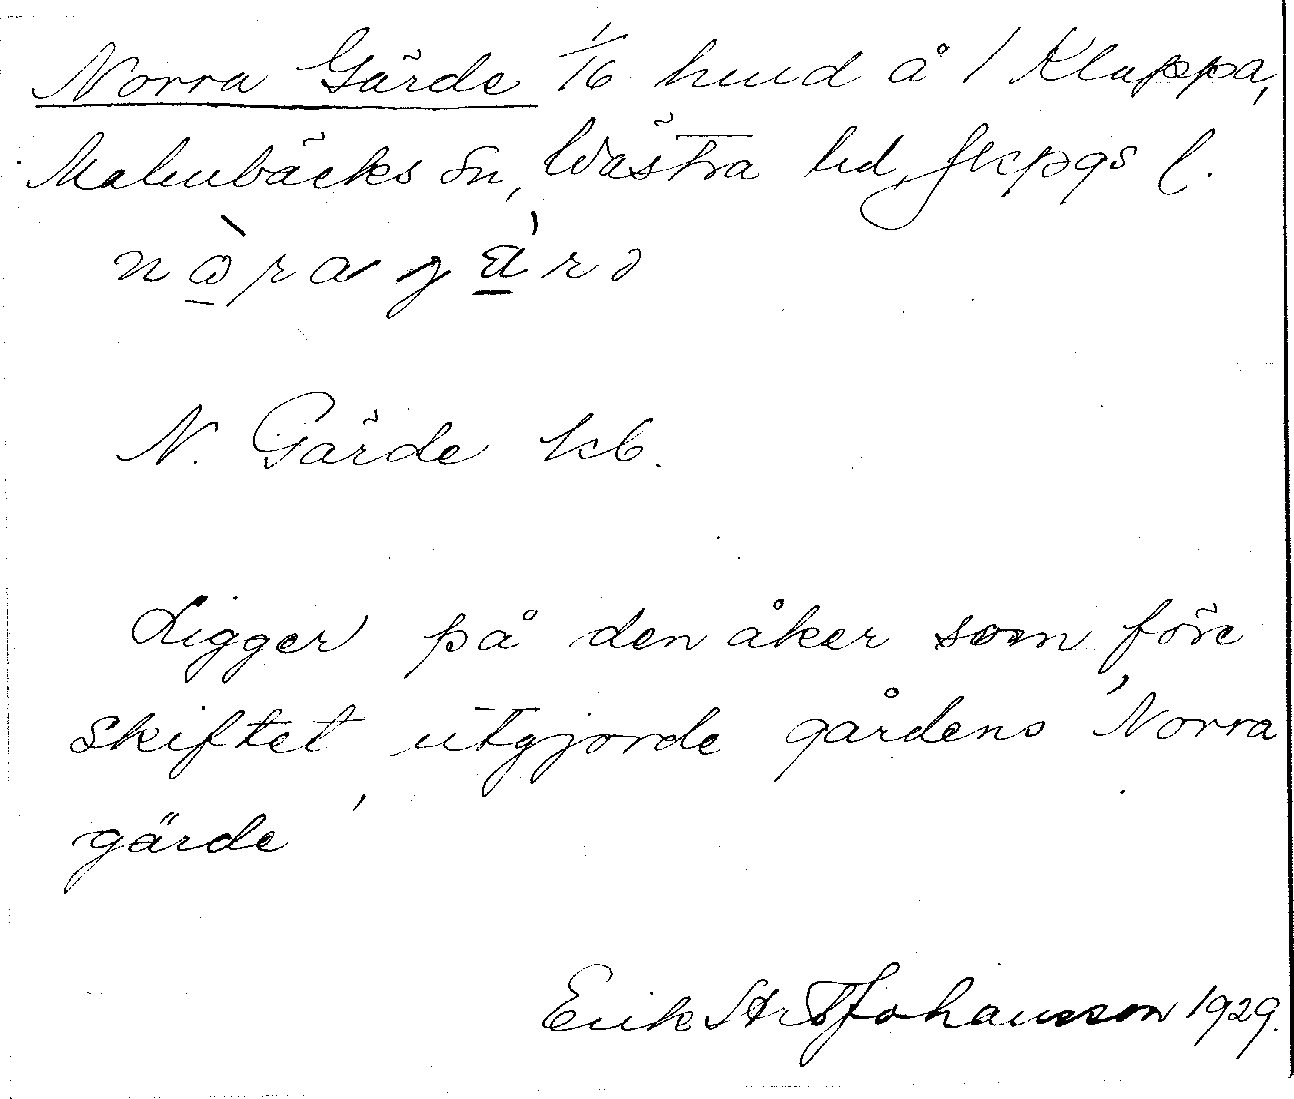 Norra Gärde 1/6 hmd å 1 Klappa,
Malmbäcks sn, Västra hd, Jkpgs l.
N. Gärde kb.
Ligger på den åker som före
skiftet utgjorde gårdens 'Norra
gärde'
Erik Johansson 1929.